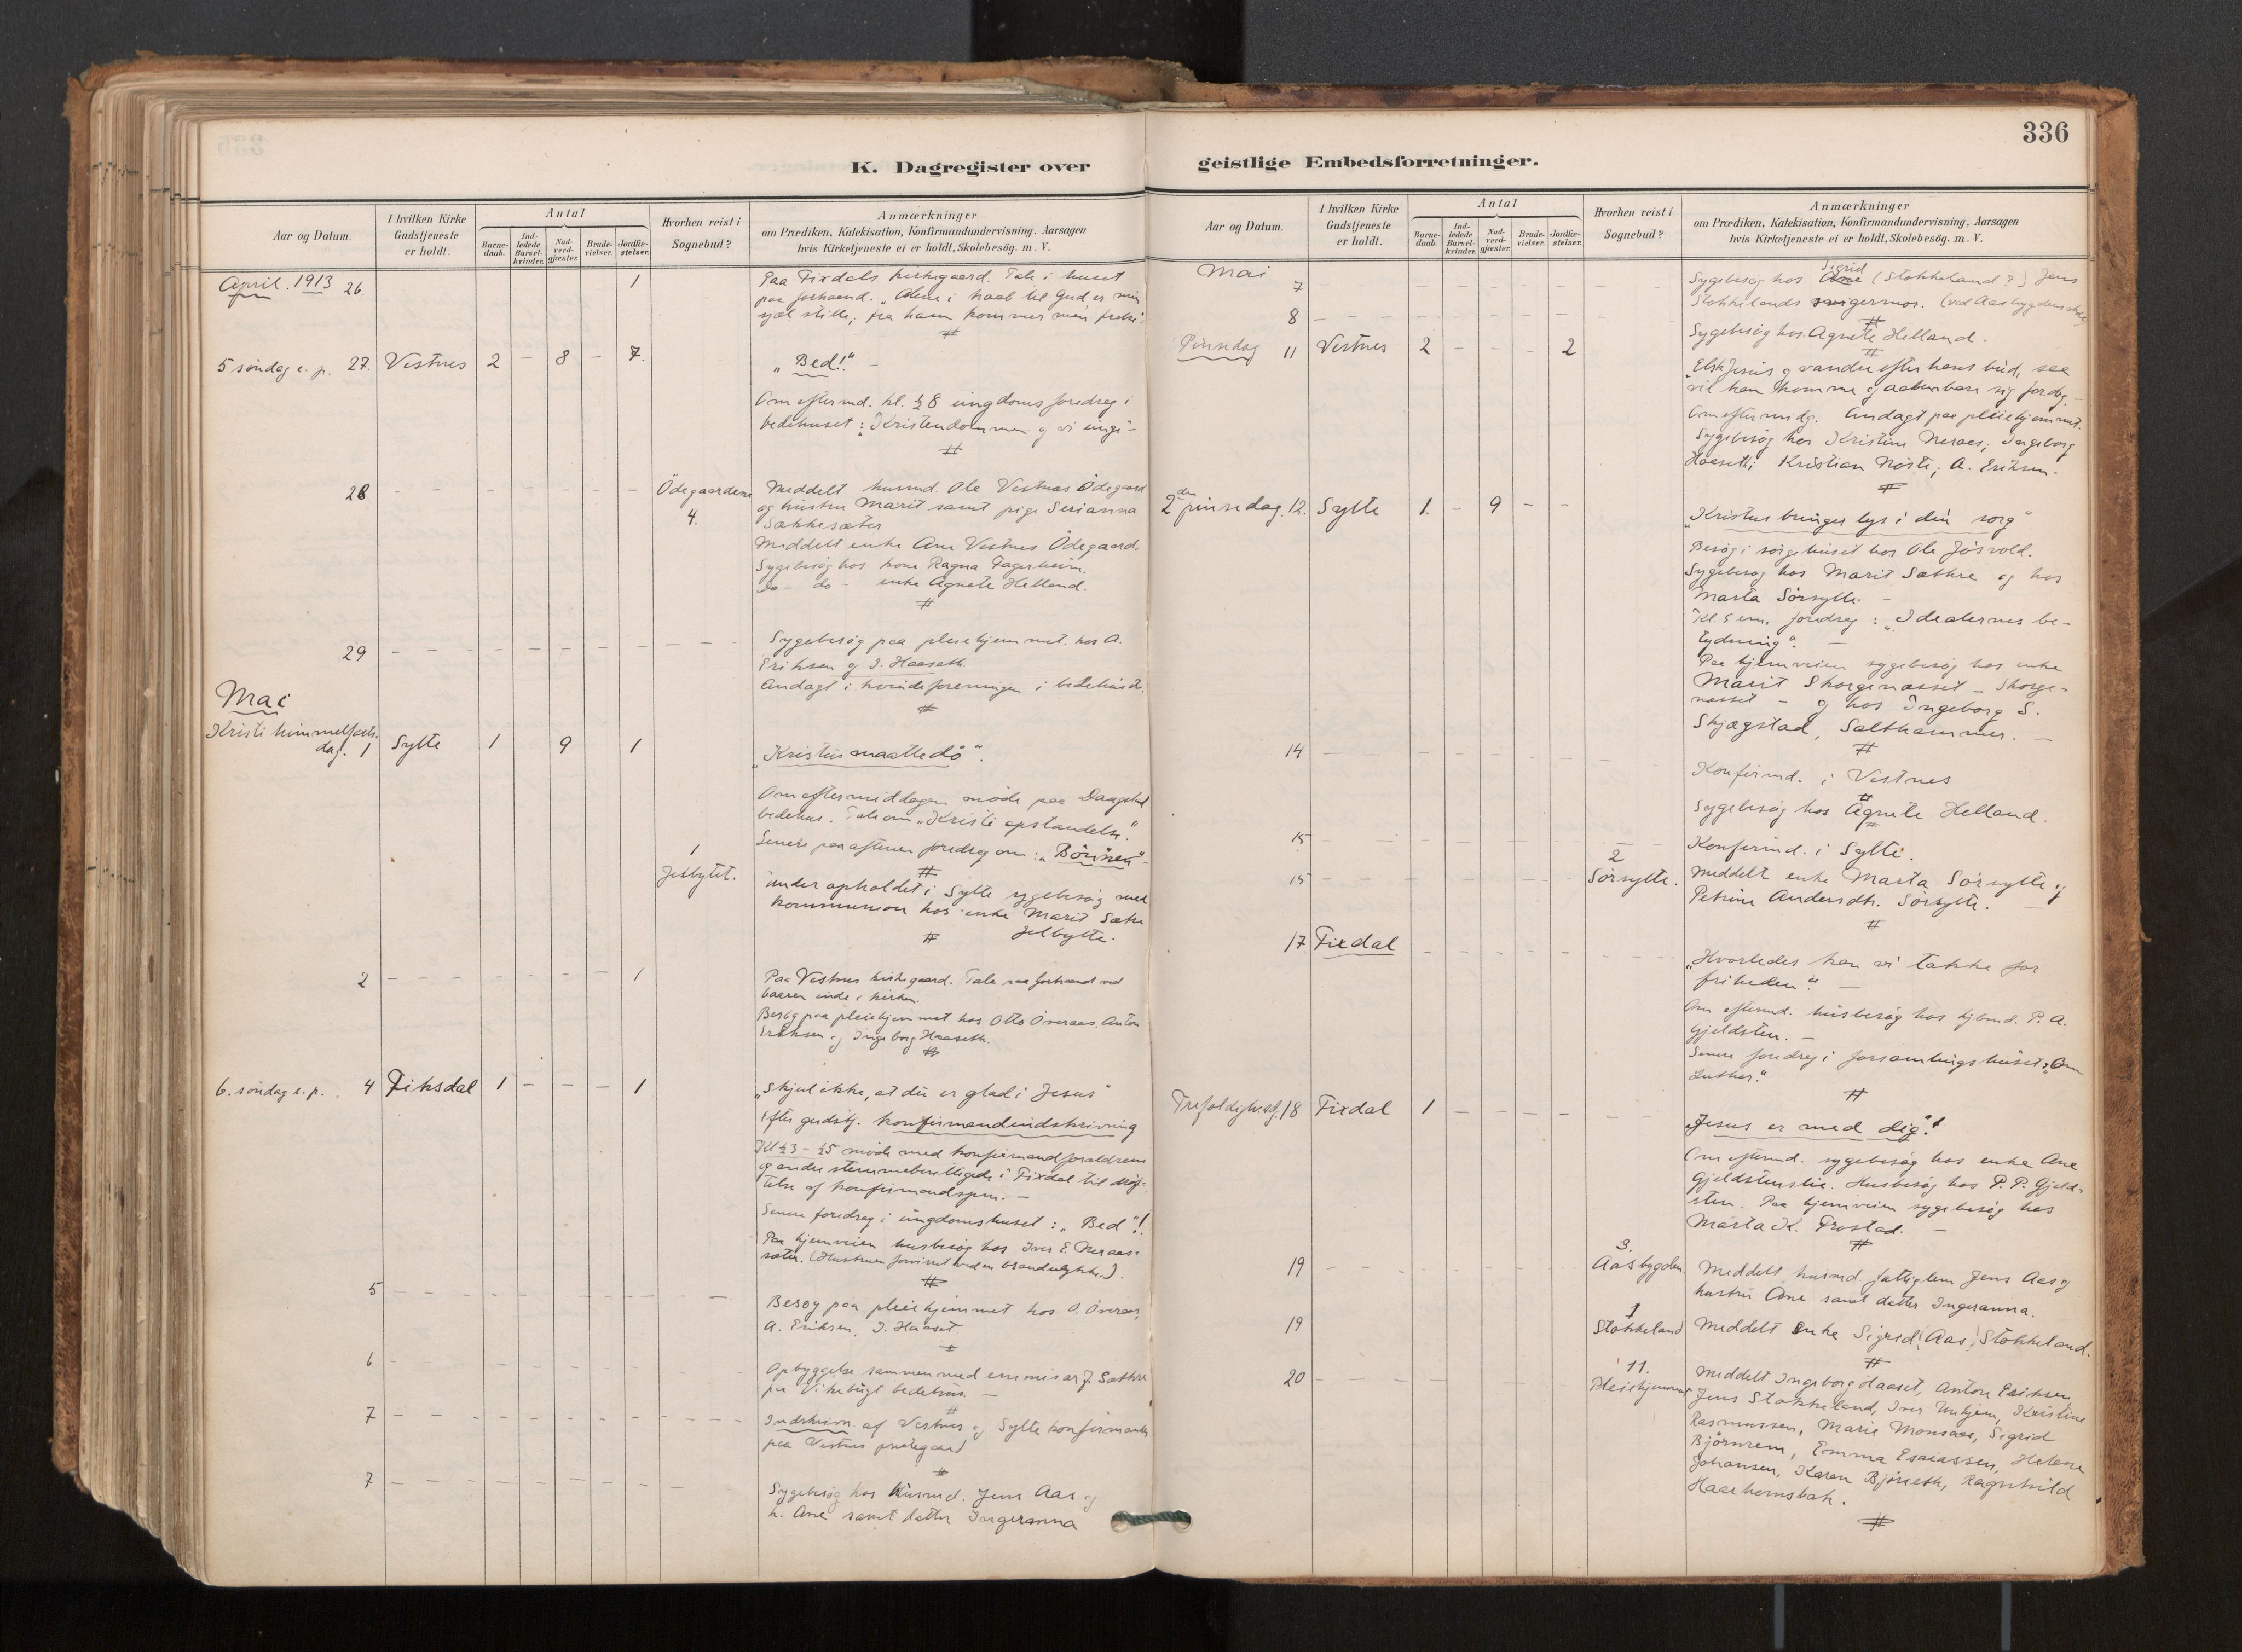 336
K. Dagregister over
geistlige Embedsforretninger.
Aar og Datum.
I hvilken Kirke
Gudstjeneste
er holdt.
Antal
Barne-
daab.
Ind-
ledede
Barsel-
kvinder.
Nad-
verd-
gjester.
Brude-
vielser.
Jordfæ-
stelser.
Hvorhen reist i
Sognebud?
Anmærkninger
om Prædiken, Katekisation, Konfirmandundervisning, Aarsagen
hvis Kirketjeneste ei er holdt, Skolebesög. m. V.
April. 1913 26. 1
Paa Fixdals kirkegaard. Tale i huset
paa forhaand. "Alene i haab til Gud er min
sjæl stille; fra ham kommer min frelse".
#
5 söndag e. p. 27. Vestnes 2 – 8 – 7.
"Bed!" –
Om eftermd. kl. ½ 8 ungdomsforedrag i
bedehuset: "Kristendommen og vi unge" –
#
28 – – – – – – – Ödegaardene
4.
Meddelt husmd. Ole Vestnes Ödegaard
og hustru Marit samt pige Serianna
Sækkesæter
Meddelt enke Ane Vestnes Ödegaard.
Sygebesög hos kone Ragna Fagerheim.
do – do – enke Agnete Helland.
#
29 – – – – – – – – –
Sygebesög paa pleiehjemmet hos A.
Eriksen og I. Haaseth.
Andagt i kvindeforeningen i bedehuset.
#
Mai
Kristi himmelfarts-
dag. 1 Sylte 1 9 1
"Kristus maatte dö".
Om eftermiddagen möde paa Daugstad
bedehus. Tale om "Kristi opstandelse."
Senere paa aftenen foredrag om: "Bönnen" –
#
1
Jelbytet.
Under opholdet i Sylte sygebesög med
kommunion hos enke Marit Sætre
Jelbytte.
#
2 – – – – – – – 1
Paa Vestnes kirkegaard. Tale paa forhaand ved
baaren inde i kirken.
Besög paa pleiehjemmet hos Otto Överaas, Anton
Eriksen og Ingeborg Haaseth.
#
6. söndag e. p. 4 Fiksdal 1 – – – 1
"Skjul ikke, at du er glad i Jesus"
Efter gudstj. konfirmandindskrivning
Kl ½3 – ½5 möde med konfirmandforældrene
og andre stemmeberettigede i Fixdal til dröf-
telse af konfirmandspm. –
Senere foredrag i ungdomshuset: "Bed"!
Paa hjemveien husbesög hos Iver E. Neraas-
sæter. (Hustruen forvirret ved en brandulykke).
#
5 – – – – – – – –
Besög paa pleiehjemmet hos O. Överaas,
A. Eriksen, I. Haaset
#
6 – – – – – – –
Opbyggelse sammen med emmisær J. Sæthre
paa Vikebugt bedehus. –
#
7 – – – – – – – – –
Indskrivn. af Vestnes og Sylte konfirmanter
paa Vestnes prestegaard
#
7 – – – – – – – –
Sygebesög hos husmd. Jens Aas og
h. Ane samt datter Ingeranna
Aar og Datum.
I hvilken Kirke
Gudstjeneste
er holdt.
Antal
Barne-
daab.
Ind-
ledede
Barsel-
kvinder.
Nad-
verd-
gjester.
Brude-
vielser.
Jordfæ-
stelser.
Hvorhen reist i
Sognebud?
Anmærkninger
om Prædiken, Katekisation, Konfirmandundervisning, Aarsagen
hvis Kirketjeneste ei er holdt, Skolebesög. m. V.
Mai
7 – – – – – – – –
Sygebesög hos Sigrid (Stokkeland?) Jens
Stokkelands svigermor. (ved Aasbygdens skole)
#
8 – – – – – – – –
Sygebesög hos Agnete Helland.
#
Pinsedag 11 Vestnes 2 – – – 2
"Elsk Jesus og vandre efter hans bud, saa
vil han komme og aabenbare sig for dig. –
Om eftermidg. Andagt paa pleiehjemmet.
Sygebesög hos Kristine Neraas, Ingeborg
Haaseth; Kristian Nöste; A. Eriksen.
#
2den pinsedag. 12. Sylte 1. – 9 – –
"Kristus bringer lys i din sorg"
Besög i sörgehuset hos Ole Jösvold.
Sygebesög hos Marit Sæthre og hos
Marta Sörsylte. –
Kl. 5 em. foredrag: "Idealernes be-
tydning". –
Paa hjemveien sygebesög hos enke
Marit Skorgenæsset – Skorge-
næsset – og hos Ingeborg S.
Skjægstad, Salthammer. –
#
14 – – – – – – –
Konfirmd. i Vestnes
#
Sygebesög hos Agnete Helland.
#
15 – – – – – – –
Konfirmd. i Sylte.
15 – – – – – – 2
Sörsylte.
Meddelt enke Marta Sörsylte og
Petrine Andersdtr. Sörsylte. –
#
17 Fixdal – – – – – – –
"Hvorledes kan vi takke for
friheden". –
Om eftermd. husbesög hos kjbmd. P. A.
Gjeldsten. –
Senere foredrag i forsamlingshuset: "Om
Luther."
#
Trefoldighedsf. 18 Fixdal 1 – – – – – –
"Jesus er med dig"!
Om eftermd. sygebesög hos enke Ane
Gjeldstenslie. Husbesög hos P. P. Gjeld-
sten. Paa hjemveien sygebesög hos
Marta K. Frostad. –
#
19 – – – – – – 3.
Aasbygden
Meddelt husmd. fattiglem Jens Aas og
hustru Ane samt datter Ingeranna.
19 1
Stokkeland
Meddelt enke Sigrid (Aas) Stokkeland.
#
20 – – – – – – 11.
Pleiehjemmet
Meddelt Ingeborg Haaset, Anton Eriksen
Jens Stokkeland, Iver Unhjem, Kristine
Rasmussen, Marie Monsaas, Sigrid
Björnrem, Emma Esaiassen, Helene
Johansen, Karen Björseth, Ragnhild
Haaehornsbak.
#